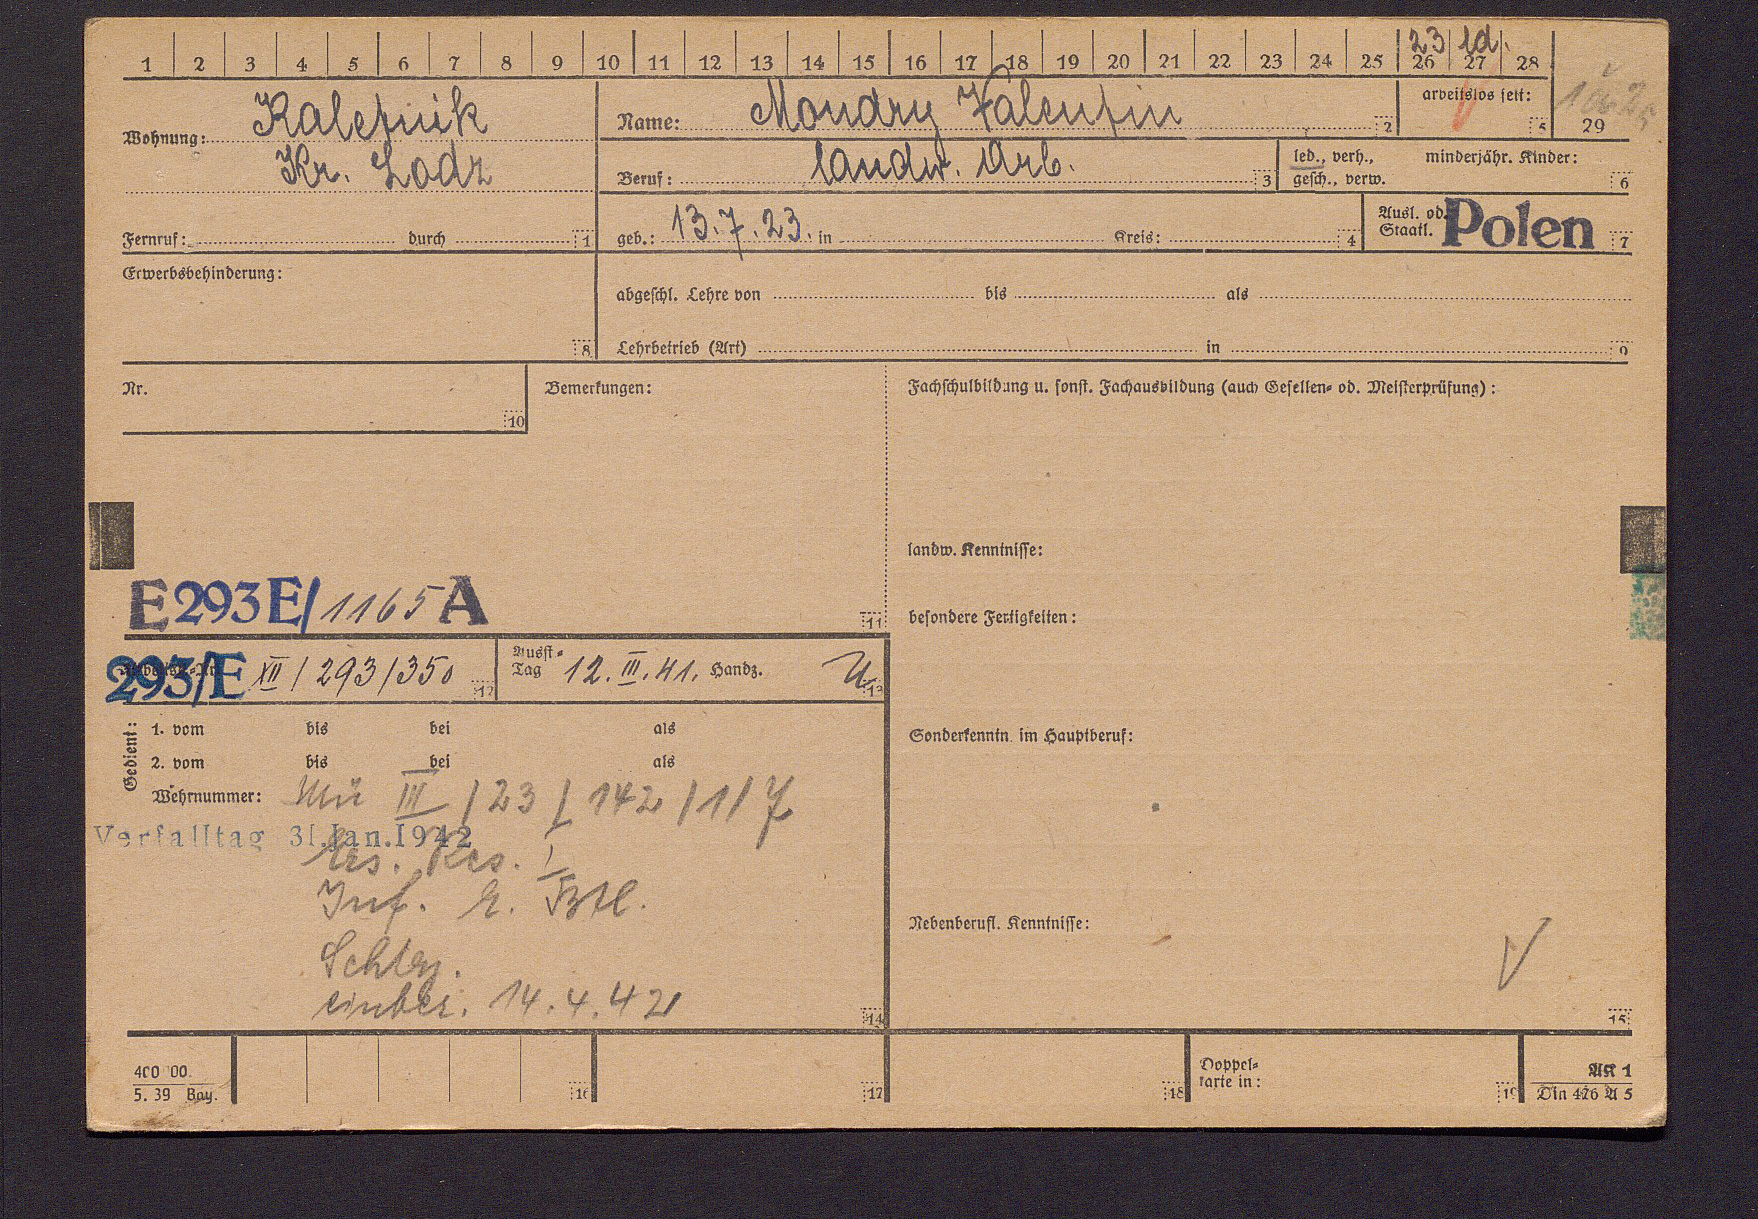 23 ld.
1 2 3 4 5 6 7 8 9 10 11 12 13 14 15 16 17 18 19 20 21 22 23 24 25 26 27 28
29
arbeitslos seit: 5
Wohnung: Kaletnik
Kr. Lodz
Name: Mondry Valentin 2
Beruf: landw. Arb. 3
led., verh.,
gesch., verw.
minderjähr. Kinder: 6
Fernruf: durch 1
geb.: 13.7.23. in Kreis: 4
Ausl. od.
Staatl. Polen 7
Erwerbsbehinderung: 8
abgeschl. Lehre von bis als
Lehrbetrieb (Art) in 9
Nr. 10
Bemerkungen:
Fachschulbildung u. sonst. Fachausbildung (auch Gesellen- od. Meisterprüfung):
landw. Kenntnisse:
E 293 E/ 1165 A 11
besondere Fertigkeiten:
293/E XII/293/350 12
Ausst.-
Tag 12. III. 41. Handz. 13
Gedient:
1. vom bis bei als
2. vom bis bei als
Sonderkenntn. im Hauptberuf:
Wehrnummer: Mü III/23/142/1/7
Verfalltag 31.Jan.1942
Ers. Res. I
Inf. E. Btl.
Nebenberufl. Kenntnisse:
einber. 14.4.42
14
15
400 00.
5. 39 Bay.
16 17 18
Doppel-
karte in: 19
AK 1
Din 476 A 5